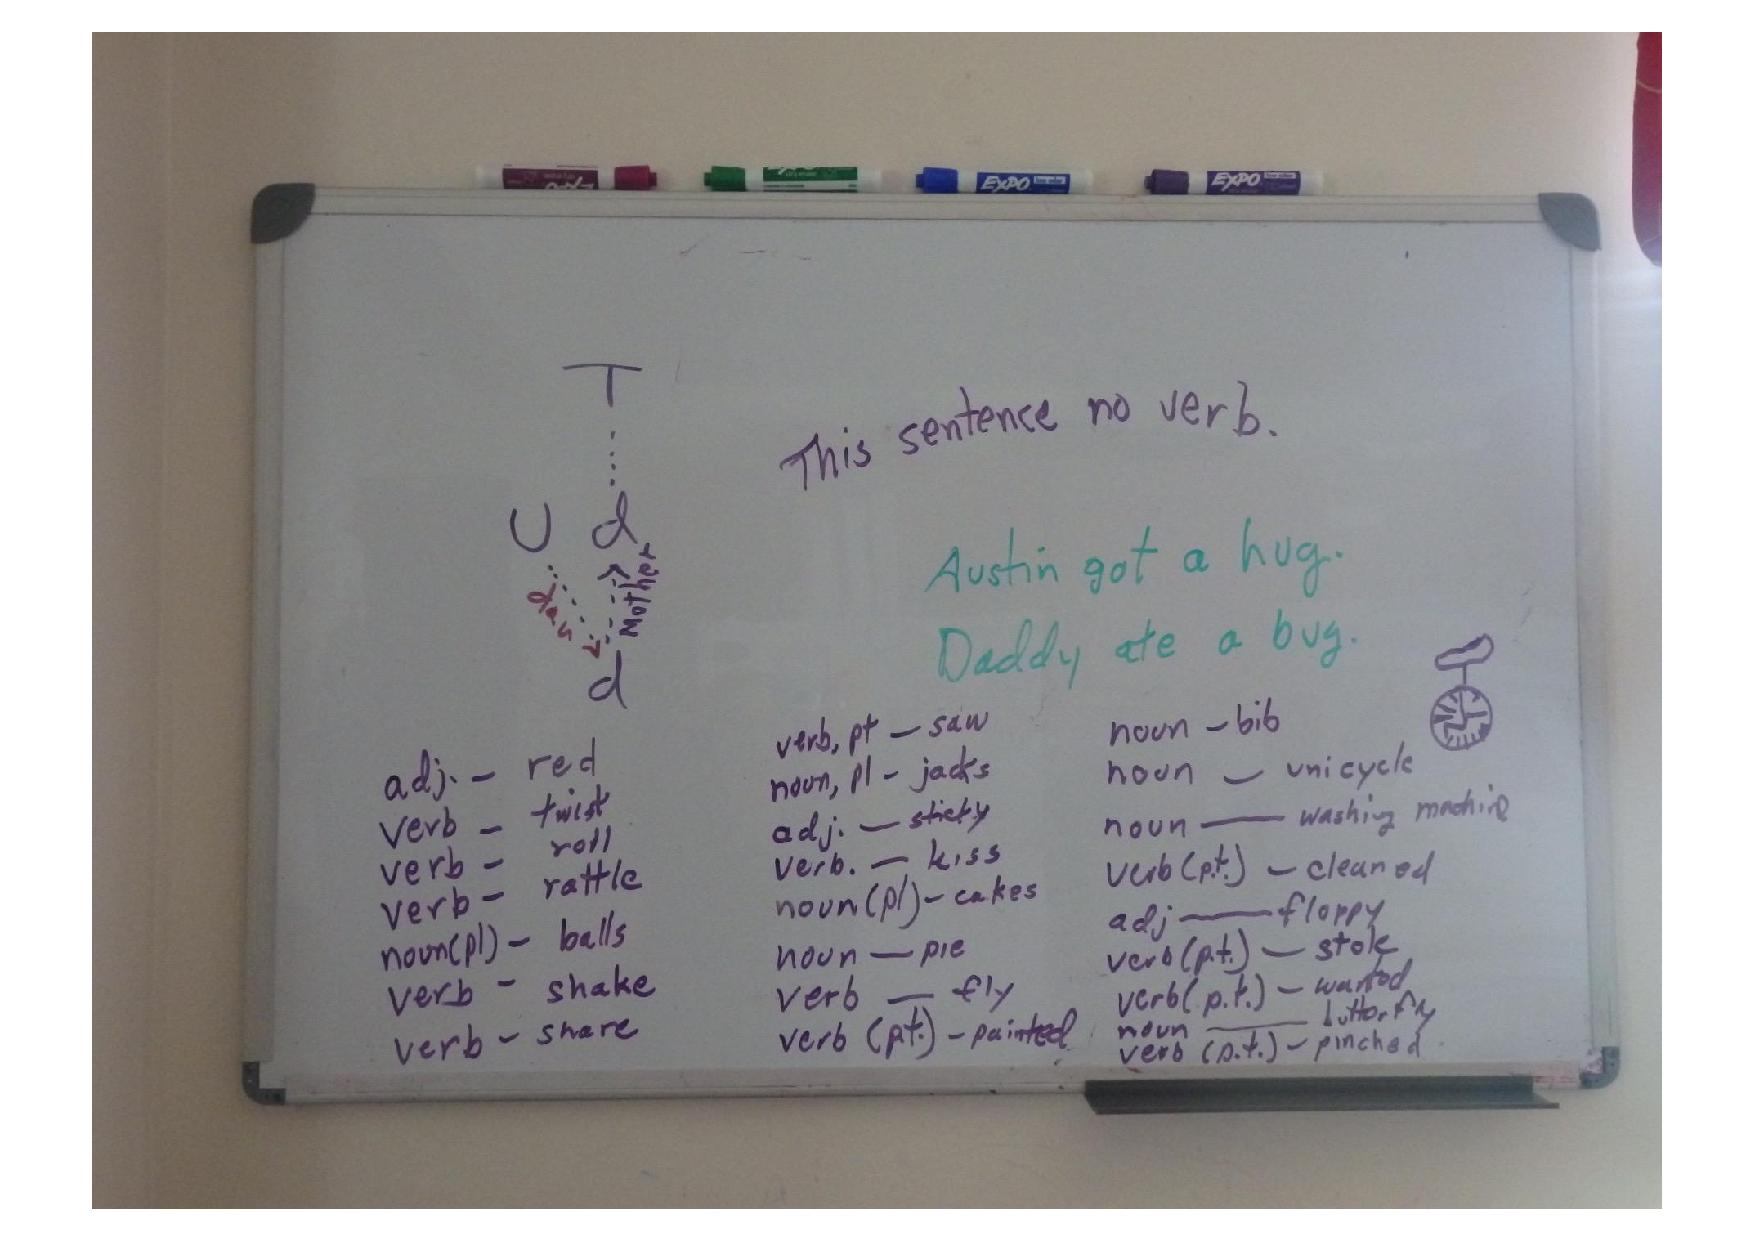 EXPO
EXPO
T
This sentence no verb.
U d
Mother
d
Austin got a hug.
Daddy ate a bug.
adj. - red
verb - twist
verb - roll
verb - rattle
noun(pl) - balls
verb - shake
verb - share
verb, pt - saw
noun, pl - jacks
adj. - sticky
verb. - kiss
noun(pl) - cakes
noun - pie
verb - fly
verb (p.t.) - painted
noun - bib
noun - unicycle
noun - washing machine
verb (p.t.) - cleaned
adj - floppy
verb (p.t.) - stole
verb (p.t.) - wanted
noun - butterfly
verb (p.t.) - pinched